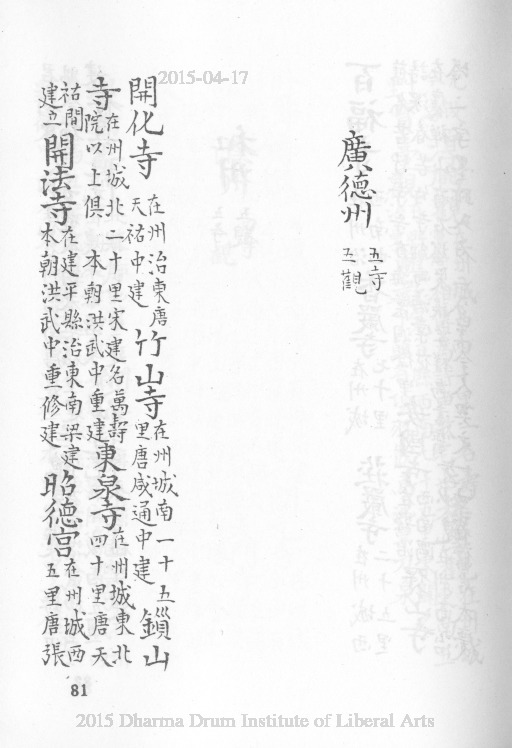 2015-04-17
廣德州 五寺 五觀
開化寺 在州治東唐天祐中建 竹山寺 在州城南一十五里唐咸通中建 鎖山
寺 在州城北二十里宋建名萬壽院以上俱 本朝洪武中重建 東泉寺 在州城東北四十里唐天
祐間建立 開法寺 在建平縣治東南梁建本朝洪武中重修建 昭德宫 在州城西五里唐張
81
2015 Dharma Drum Institute of Liberal Arts